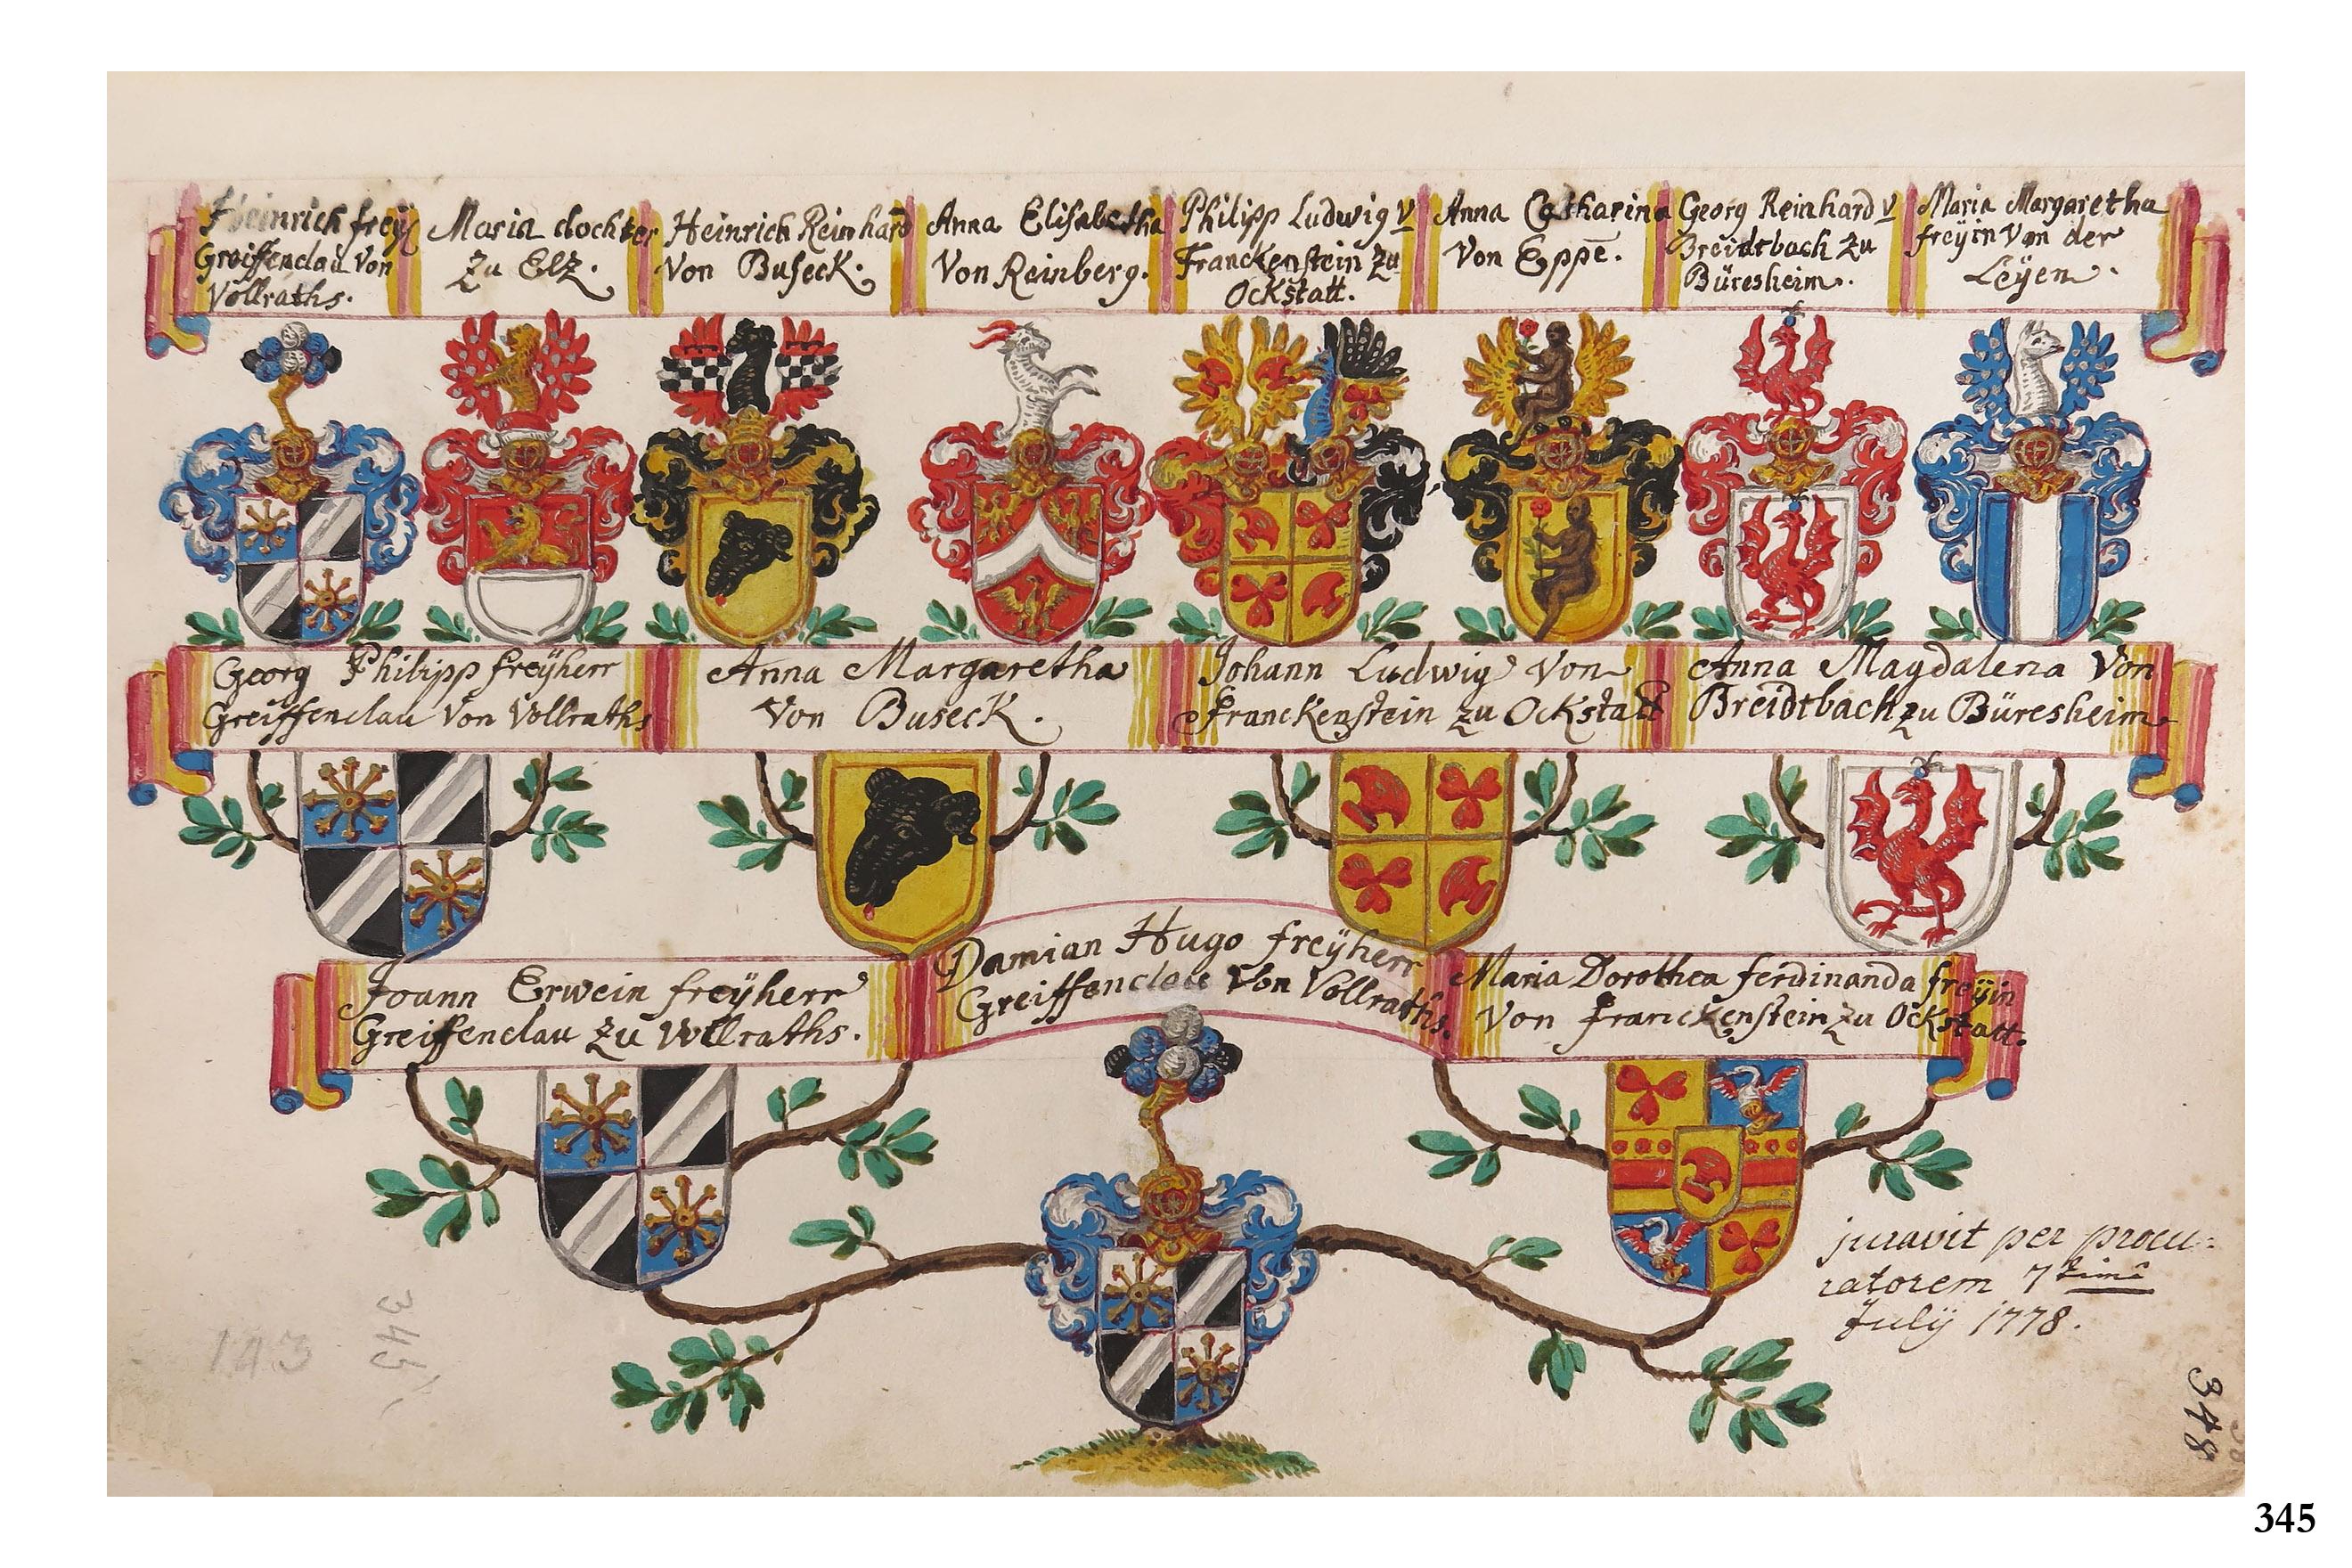 Heinrich freÿ
Greiffenclau Von
Vollraths.
Maria dochter
Zu Elz.
Heinrich Reinhard
Von Buseck.
Anna Elisabetha
Von Reinberg.
Philipp Ludwig v
Franckenstein zu
Ockstatt.
Anna Catharina
Von Eppē.
Georg Reinhard v
Breidtbach zu
Büresheim.
Maria Margaretha
freÿin Von der
Leÿen.
Georg Philipp freÿherr
Greiffenclau Von Vollraths
Anna Margaretha
Von Buseck.
Johann Ludwig Von
Franckenstein zu Ockstatt
Anna Magdalena Von
Breidtbach zu Büresheim
Joann Erwein freÿherr
Greiffenclau zu Vollraths.
Damian Hugo freÿherr
Greiffenclau Von Vollraths.
Maria Dorothea ferdinanda freÿin
Von Franckenstein zu Ockstatt.
juravit per procu:
ratorem 7timâ
Julÿ 1778.
143
345
348
345